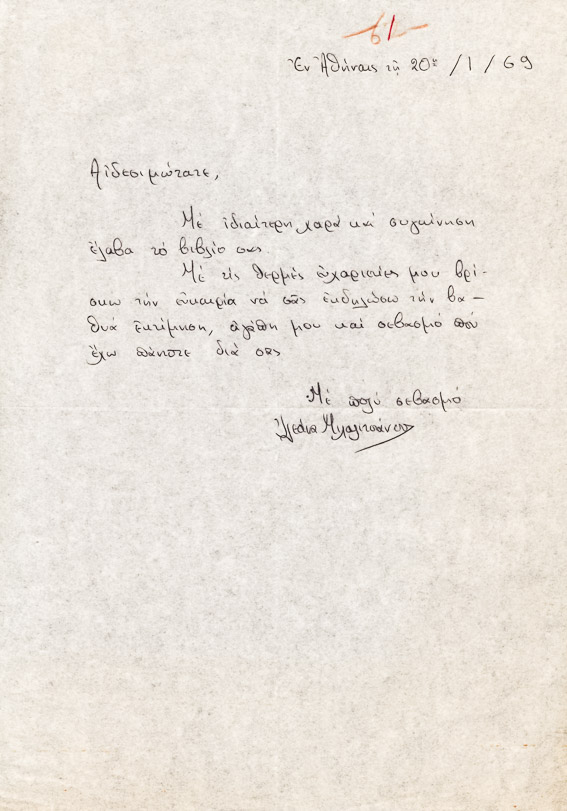 61
Ἐν Ἀθήναις τῇ 20ῃ /1/69
Αἰδεσιμώτατε,
Μέ ἰδιαίτερη χαρά καί συγκίνηση
ἔλαβα τό βιβλίο σας.
Μέ τίς θερμές εὐχαριστίες μου βρί-
σκω τήν εὐκαιρία νά σᾶς ἐκδηλώσω τήν βα-
θυά ἐκτίμηση, ἀγάπη μου καί σεβασμό πού
ἔχω πάντοτε διά σας
Μέ πολύ σεβασμό